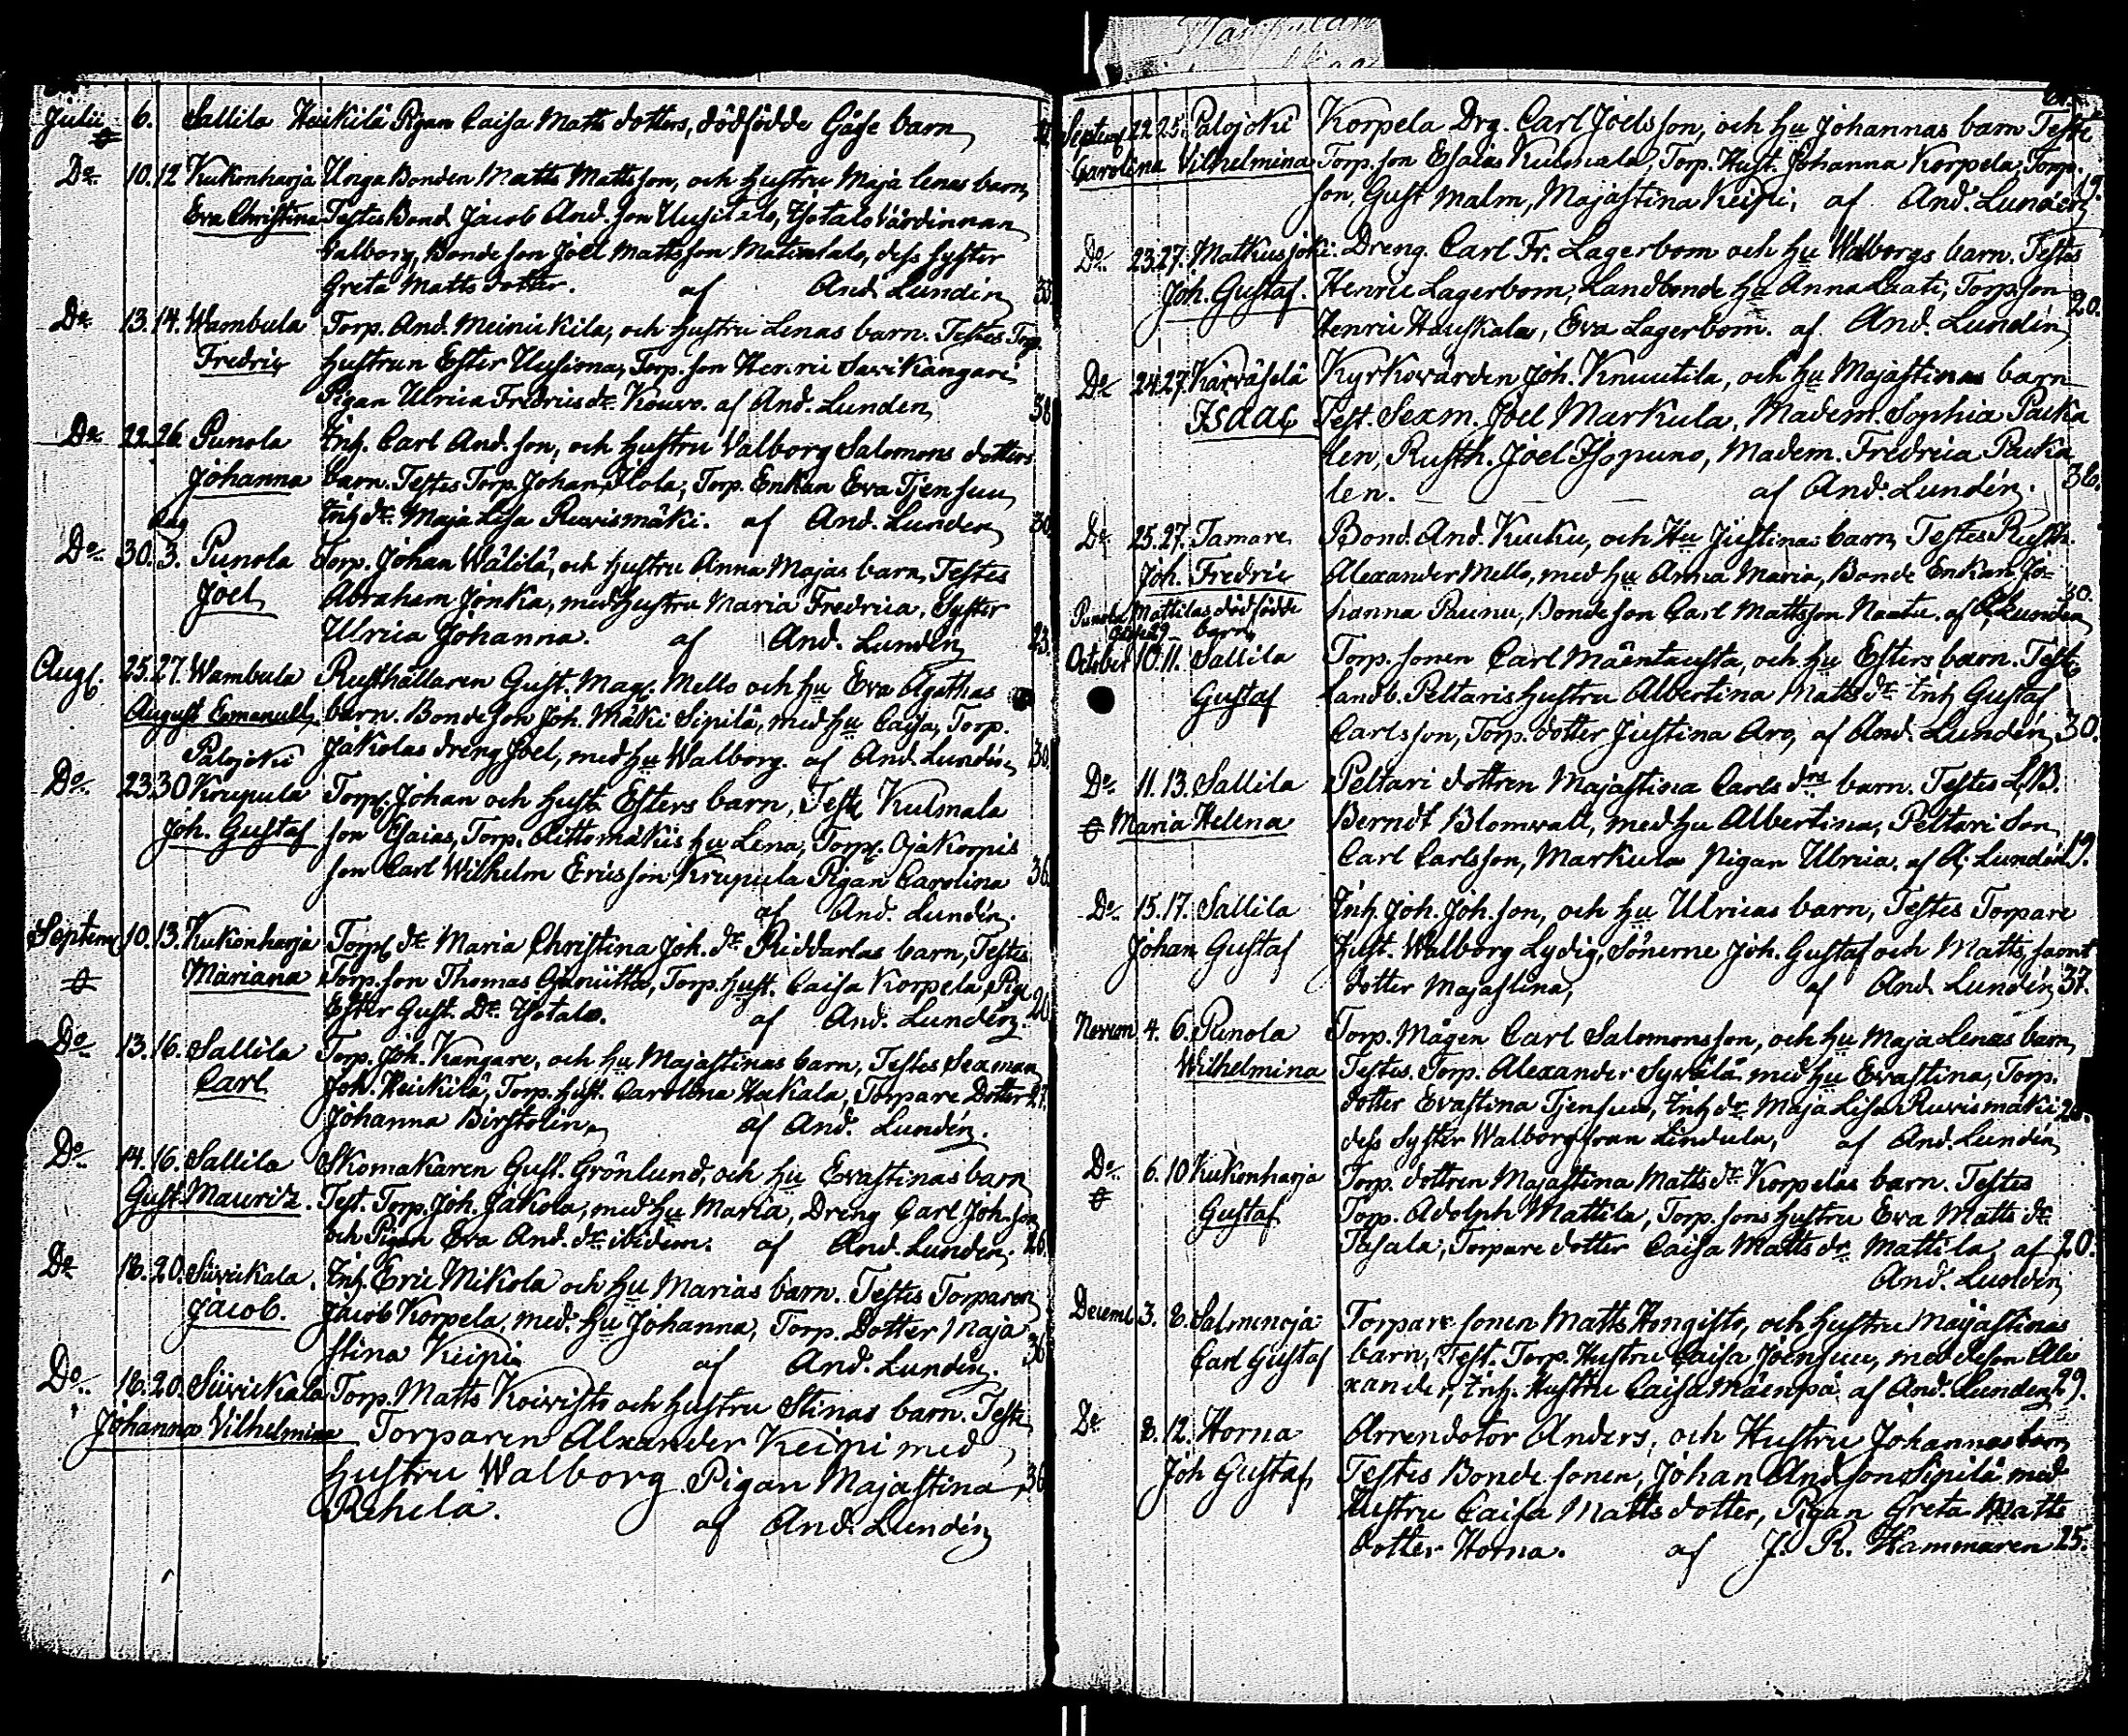 Julii 6. Sallila Heikilä Pigan Caisa Matts dotters, dödfödde Gåsse barn
Do 10. 12 Kukonharja Unga Bonden Matts Mattsson, och hustru Maja Lenas barn,
Eva Christina Testes Bond. Jacob And.son Uusitalo, Ysotalo Värdinnan
Valborg, Bondeson Joel Mattsson Matintalo, dess syster
Greta Mattsdotter. af And. Lundén 33
Do 13. 14. Wambula Torp. And. Meinikkila, och hustru Lenas barn. Testes Torp.
Fredric hustrun Ester Uusiona, Torp.son Henric Savikangari
Pigan Ulrica Fredricsdr Kouvo. af And. Lundén 38
Do 22. 26. Punola Inh. Carl And.son, och hustru Valborg Salomons dotters
Johanna barn. Testes Torp. Johan Ilola, Torp. Enkan Eva Tjensuu
Inhdr Maja Lisa Ruvismäki. af And. Lundén 30.
Aug
Do 30. 3. Punola Torp. Johan Wälilä, och hustru Anna Majas barn, Testes
Joel Abraham Jonka, med hustru Maria Fredrica, Syster
Ulrica Johanna. af And. Lundén 23.
Aug. 25. 27. Wambula Rusthållaren Gust. Mag. Mello och hu Eva Agathas
August Emanuel barn. Bondeson Joh. Mäki Sipilä, med hu Caisa, Torp.
Palojoki Jakolas dreng Joel, med hu Walborg. af And. Lundén 30.
Do 23 30 Krupula Torp. Johan och hust. Esters barn, Teste Kulmala
Joh. Gustaf son Esaias, Torp. Aittomäkis hu Lena, Torp. Ojakorpis
son Carl Wilhelm Ericsson, Krupula Pigan Carolina 36.
af And. Lundén.
Septem 10. 13. Kukonharja Torp. dr Maria Christina Joh. dr Riddarlas barn, Testes
Mariana Torp.son Thomas Ojaniitto, Torp. hust. Caisa Korpela, Pig.
Ester Gust. Dr Ysotalo. af And. Lundén. 20
Do 13. 16. Sallila Torp. Joh. Kangare, och hu Majastinas barn, Testes Sexman
Carl Joh. Heikilä, Torp. hust. Carolina Hakala, Torpare Dotter 27.
Johanna Birstolin, af And. Lundén.
Do 14. 16. Sallila Skomakaren Gust. Grönlund, och hu Evastinas barn
Gust. Mauritz. Test. Torp. Joh. Jakola, med hu Maria, Dreng Carl Joh.son
och Pigan Eva And. dr ibidem. af And. Lundén. 26.
Do 18. 20. Suvickala. Inh. Eric Mikola och hu Marias barn. Testes Torparen
Jacob. Jacob Korpela, med hu Johanna, Torp. Dotter Maja
stina Keipi af And. Lundén. 36
Do 18. 20. Torp. Matts Koivisto och hustru Stinas barn. Teste
Johanna Vilhelmina Torparen Alexander Keipi med
hustru Walborg Pigan Majastina 36
Rehela. af And. Lundén
Septem 22. 25. Palojoki Korpela Drg. Carl Joelsson, och hu Johannas barn Teste
Carolina Vilhelmina Torp.son Esaias Kulmala, Torp. Hust. Johanna Korpela, Torp.
son, Gust Malm, Majastina Keipi, af And. Lundén 19.
Do 23. 27. Matkusjoki: Dreng. Carl Fr. Lagerbom och hu Walborgs barn. Testes
Joh. Gustaf. Henric Lagerbom, Landbonde hu Anna Laati, Torp.son
Henric Hauskala, Eva Lagerbom. af And. Lundén 20.
Do 24. 27. Karväselä Kyrkovärden Joh. Knuutila, och hu Majastinas barn
Isaac Test. Sexm. Joel Markula, Madem. Sophia Packa
len, Rusth. Joel Isopuno, Madem. Fredrica Packa
len. af And. Lundén. 36.
Do 25. 27. Tamare Bond. And. Kuuku, och Hu Justinas barn, Testes Rusth.
Joh. Fredric Alexander Mello, med hu Anna Maria, Bonde Enkan Jo-
Punola Mattilas dödfödde hanna Paunu, Bondeson Carl Mattsson Naatu. af A. Lundén 30.
29 barn,
October 10. 11. Sallila Torp. sonen Carl Mäentausta, och hu Esters barn. Teste
Gustaf Landb. Peltaris hustru Albertina Matts dr Inh Gustaf
Carlsson, Torp. dotter Justina Aro, af And. Lundén 30.
Do 11. 13. Sallila Peltari dottren Majastina Carls drs barn. Testes L.B.
Maria Helena Berndt Blomvall, med hu Albertina, Peltari son
Carl Carlsson, Markula Pigan Ulrica. af A. Lundén 19.
Do 15. 17. Sallila Inh. Joh. Joh.son, och hu Ulricas barn, Testes Torpare
Johan Gustaf Hust. Walborg Lydig, Sönerne Joh. Gustaf och Matts, samt
dotter Majastina, af And. Lundén 37.
Novem 4. 6. Punola Torp. Mågen Carl Salomonsson, och hu Maja Lenas barn,
Wilhelmina Testes. Torp. Alexander Sywälä med hu Evastina, Torp.
dotter Evastina Tjensuu, Inh dr Maja Lisa Ruvismäki 20.
dess syster Walborg från Lindula, af And. Lundén
Do 6. 10 Kukonharja Torp. dottren Majastina Matts dr Korpelas barn. Testes
Gustaf Torp. Adolph Mattila, Torp. sons hustru Eva Matts dr
Tasala, Torpare dotter Caisa Matts dr Mattila af 20.
And. Lundén
Decemb 3. 8. Salmenoja Torpare sonen Matts Hongisto, och hustru Majastinas
Carl Gustaf barn, Test. Torp. Hustru Caisa Joensuu, med deson Ale
xander, Inh. Hustru Caisa Mäenpä af And. Lundén 29.
Do 8. 12. Horna Arrendator Anders, och Hustru Johannas barn
Joh Gustaf, Testes Bonde sonen, Johan And.son Sipilä med
Hustru Caisa Matts dotter, Pigan Greta Matts
dotter Horna. af J. R. Hammaren 25.